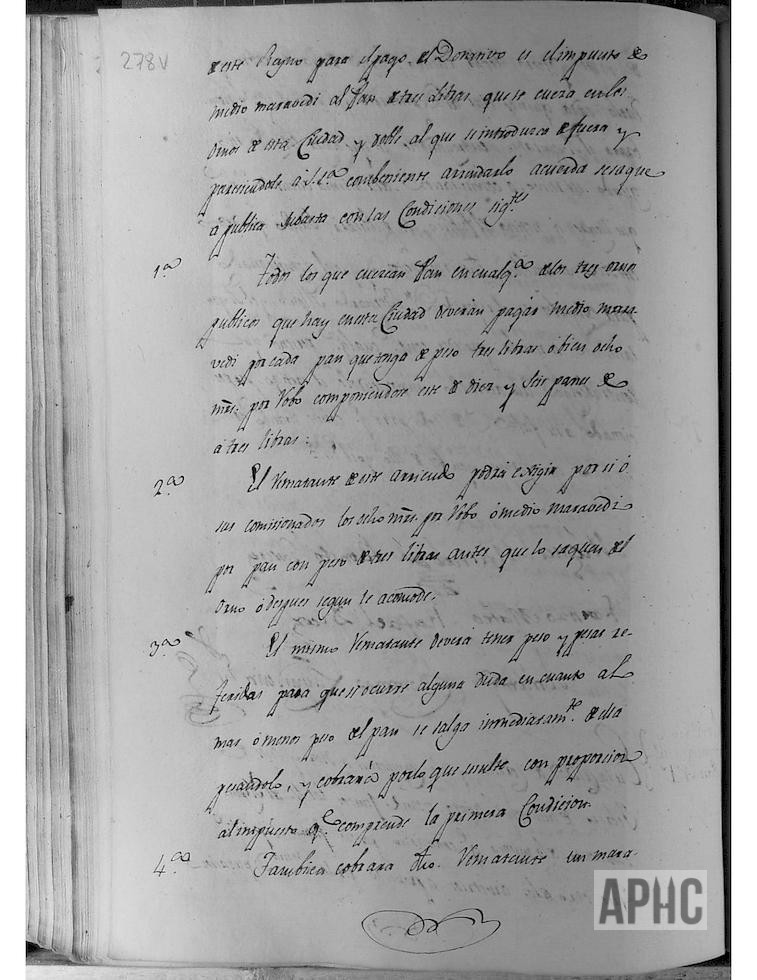 278v
de este Reyno para el pago del Donativo es el impuesto de
medio maravedi al Pan de tres Libras que se cueza en los
ornos de esta Ciudad y doble al que se introduzca de fuera y
pareciendole à S.Sª. combeniente arrendarlo acuerda se saque
à publica subasta con las Condiciones sigtes
1ª Todos los que cuezan Pan en cualqª. de los tres ornos
publicos que hay en esta Ciudad deverán pagar medio mara-
vedi por cada pan que tenga de peso tres libras ò bien ocho
mrs. por Robo componiendose este de diez y seis panes de
à tres libras:
2ª El Rematante de este arriendo podrá exigir por si ó
sus comisionados los ocho mrs. por Robo ó medio maravedi
por pan con peso de tres libras antes que lo saquen del
Orno ó despues segun le acomode.
3ª El mismo Rematante deverá tener peso y pesas re-
feridas para que si ocurre alguna duda en cuanto al
mas ó menos peso del pan se salga inmediaramte. de ella
pesandolo, y cobrará por lo que resulte con proporcion
al impuesto qe. comprende la primera Condicion.
4ª Tambien cobrara dho. Rematante un mara-
APHC